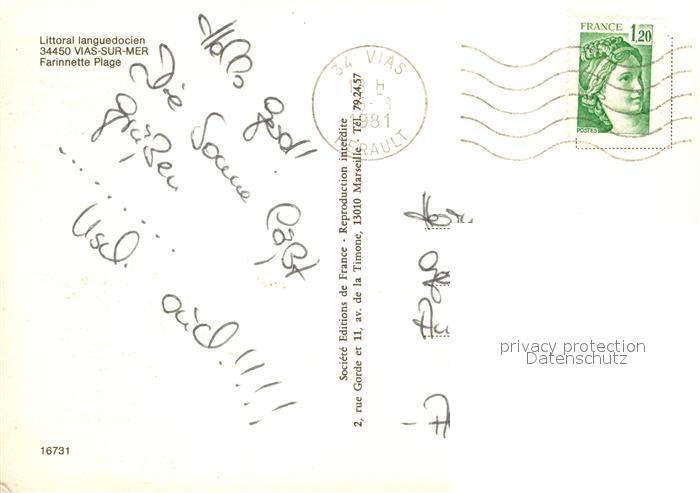 Littoral languedocien
34450 VIAS-SUR-MER
Farinnette Plage
Hallo
Die Sonne läßt
grüßen
..........
Usch. auch!!!!
34 VIAS
H
1981
HERAULT
FRANCE 1,20
POSTES
Société Editions de France - Reproduction interdite
2, rue Gorde et 11, av. de la Timone, 13010 Marseille Tél. 79.24.57
privacy protection
Datenschutz
16731